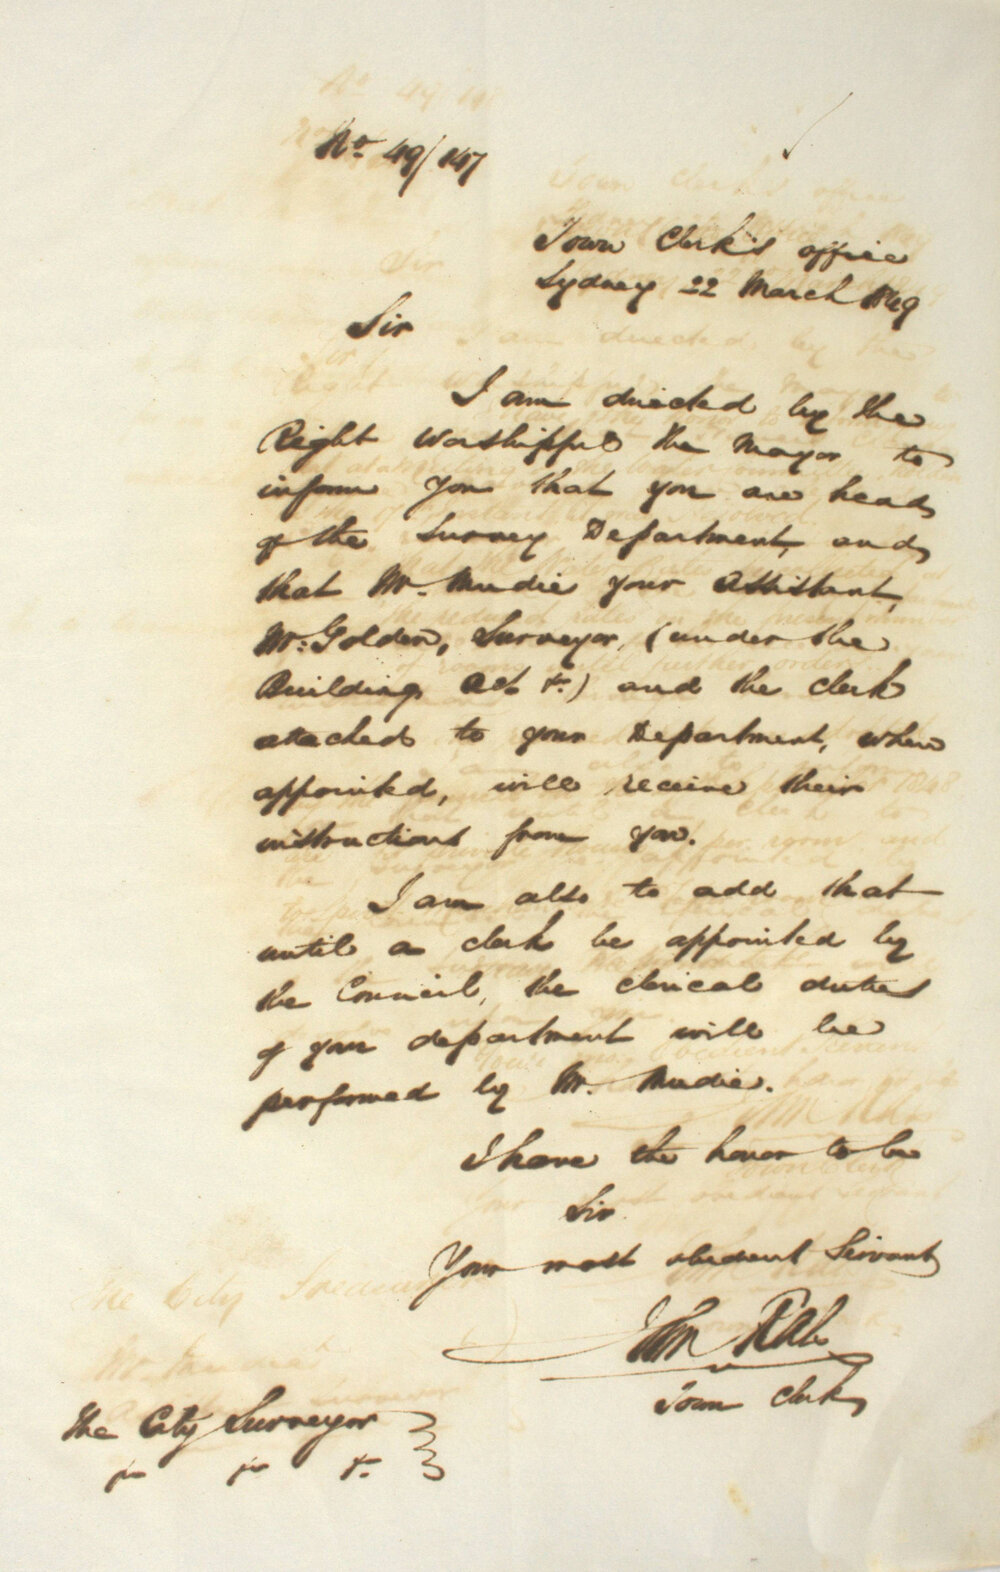 No. 49/147
Town Clerk's office
Sydney 22 March 1849
Sir
I am directed by the
Right Worshipful the Mayor to
inform you that you are head
of the Survey Department, and
that Mr. Mudie your Assistant,
Mr. Golden, Surveyor, (under the
Building Act &c.) and the clerk
attached to your Department, when
appointed, will receive their
instructions from you.
I am also to add that
until a clerk be appointed by
the Council, the clerical duties
of your department will be
performed by Mr. Mudie.
I have the honor to be
Sir
Your most obedient Servant
John Rae
Town Clerk
The City Surveyor
&c &c &c